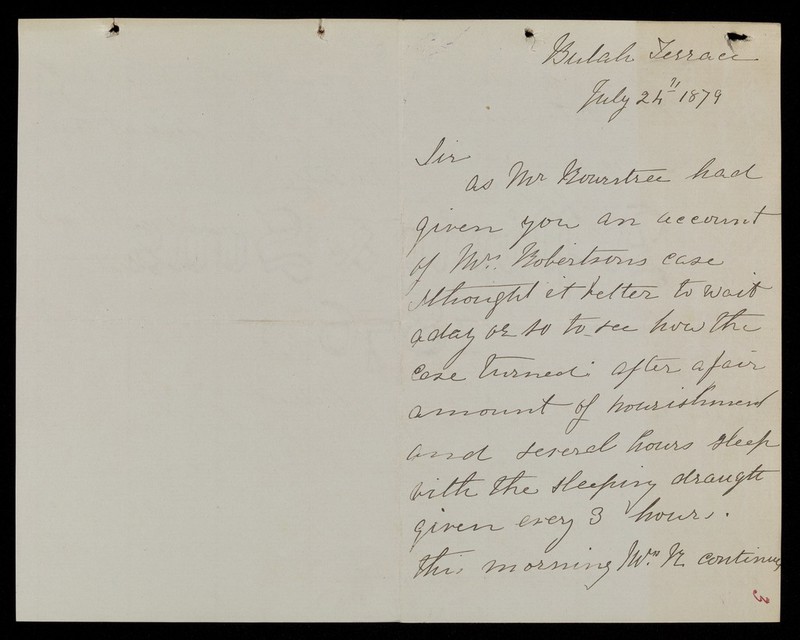 Beulah Terrace
July 24th 1879
Sir
as Mr Rowntree had
given you an account
of Mrs. Robertsons case
I thought it better to wait
a day or so to see how the
case turned. after a fair
amount of nourishment
and several hours sleep
with the sleeping draught
given every 3 hours.
this morning Mrs. R. continues
3